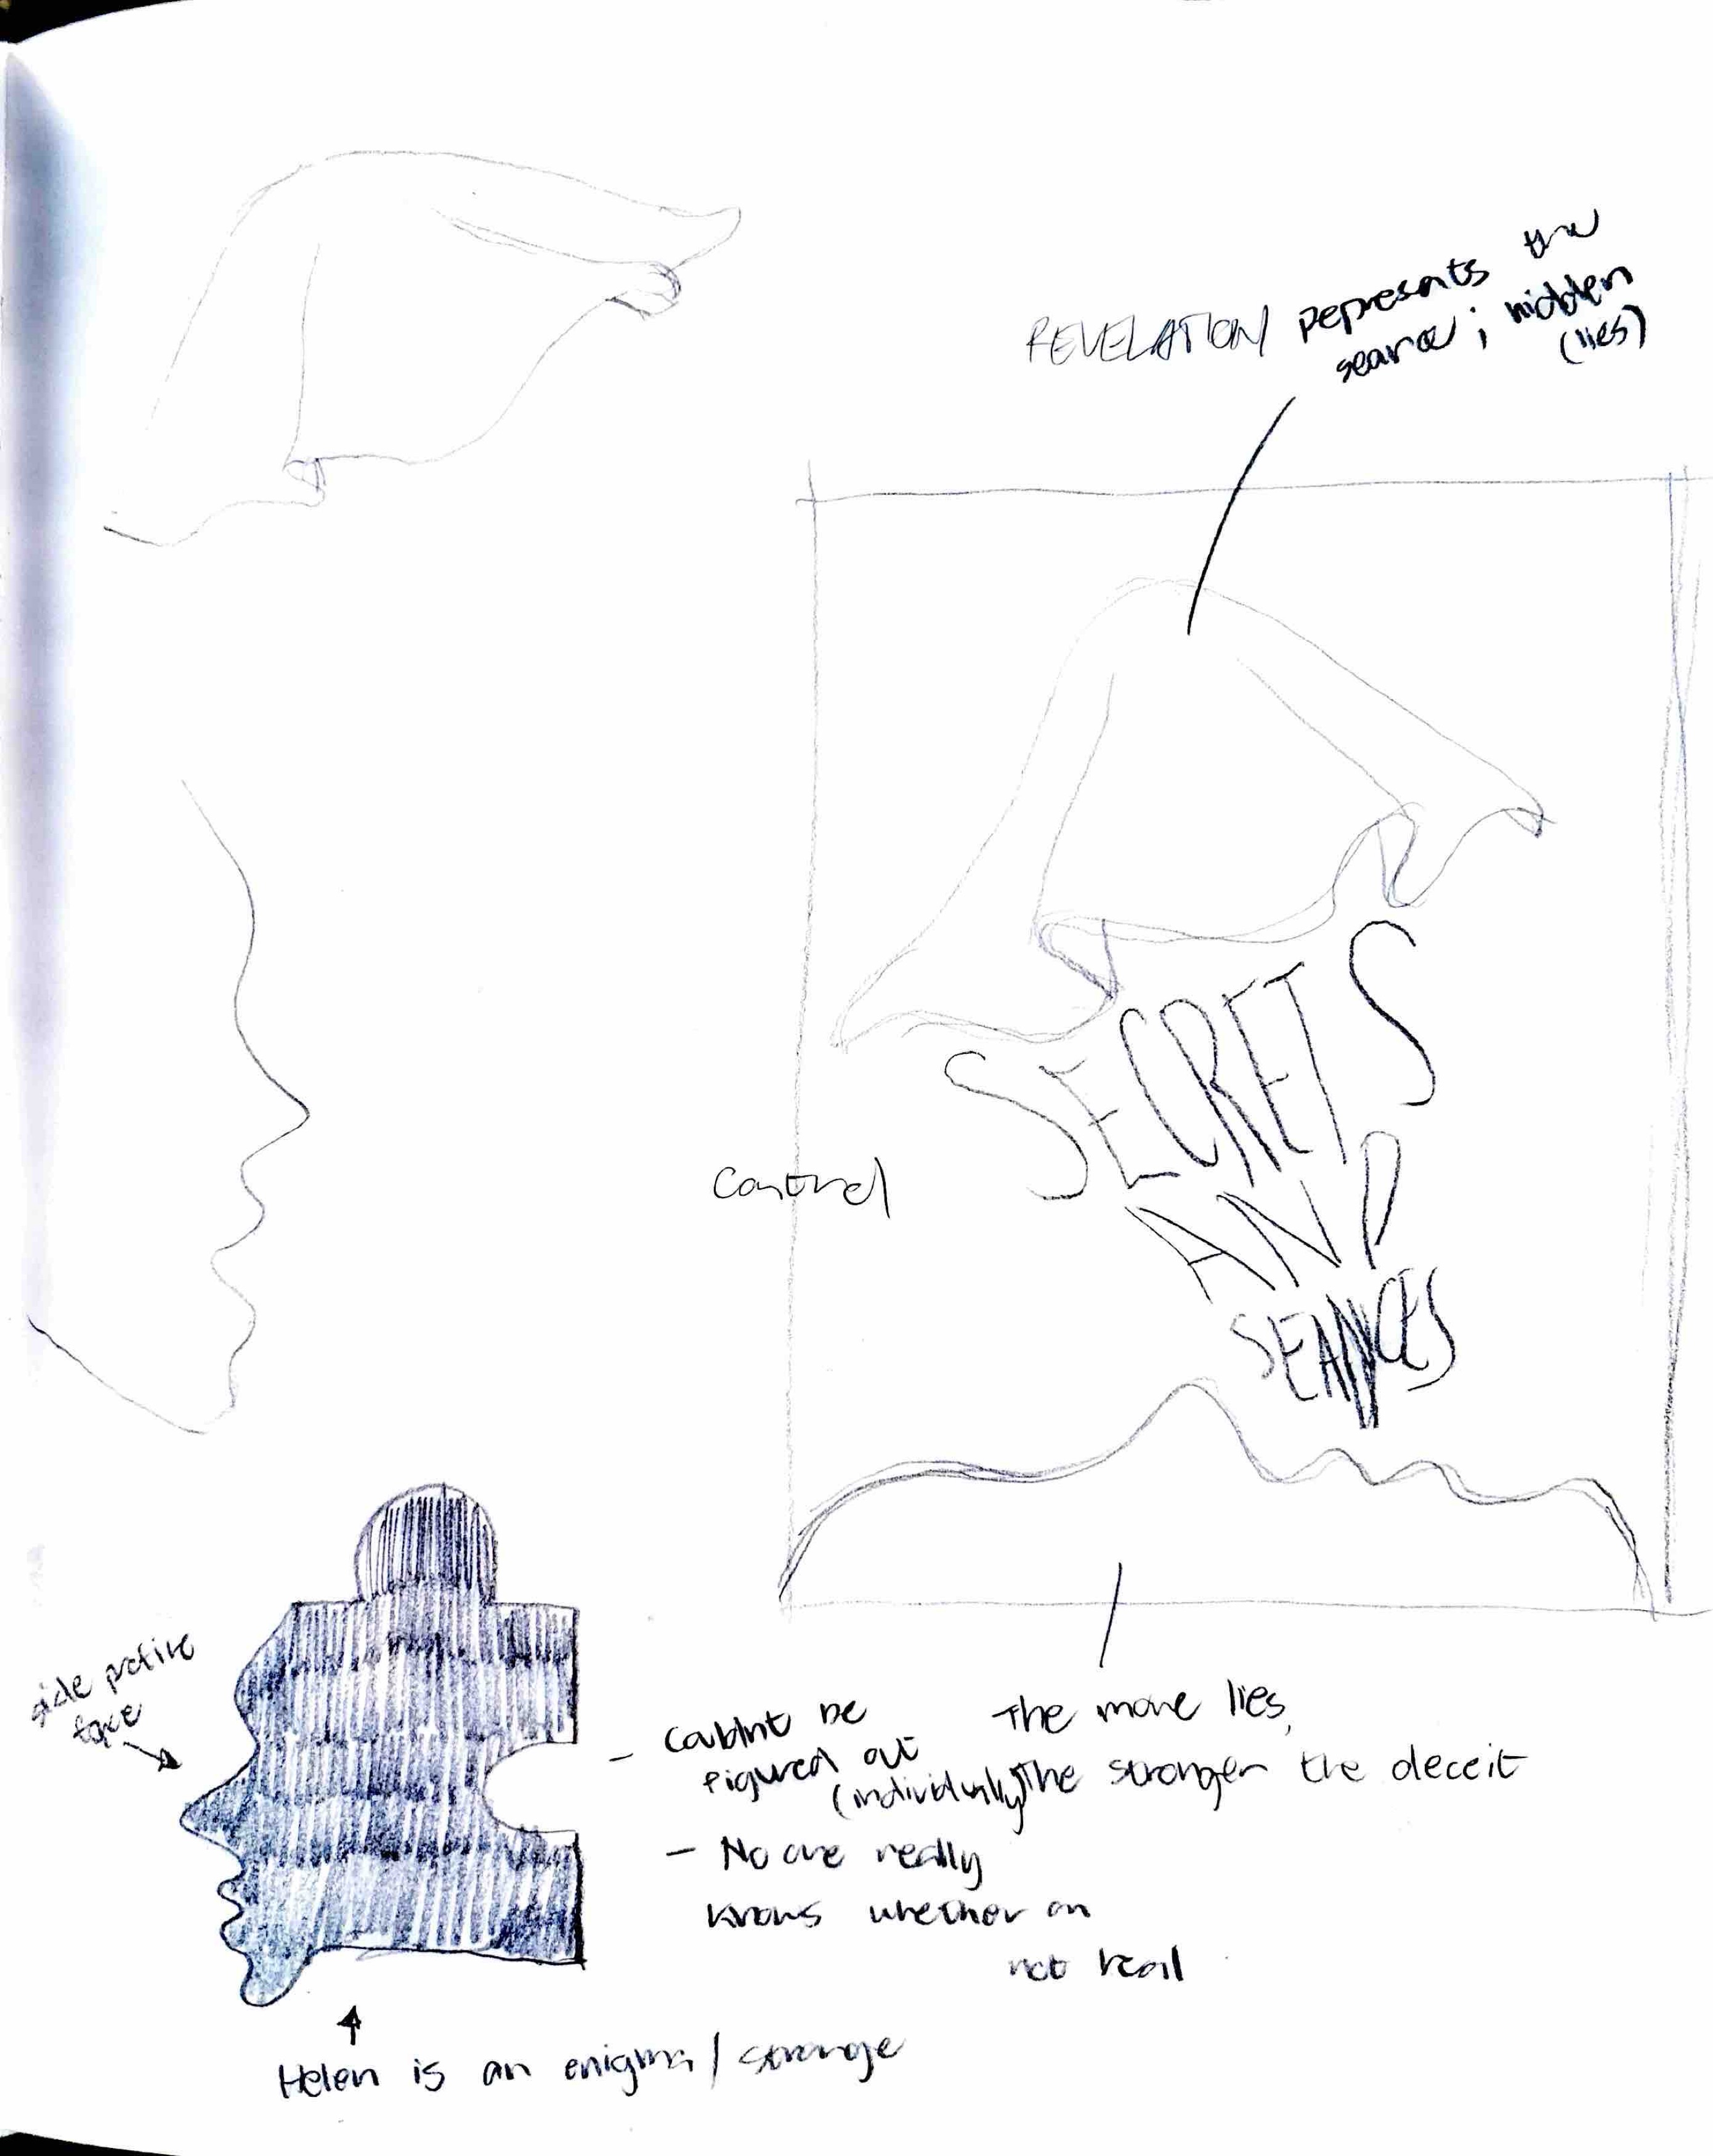 REVELATION represents the
seance; hidden
(lies)
SECRETS
AND
SEANCES
Control
side profile
face
- Couldnt be
figured out
(individually)
- No one really
knows whether or
not real
The more lies,
The stronger the deceit
Helen is an enigma / strange